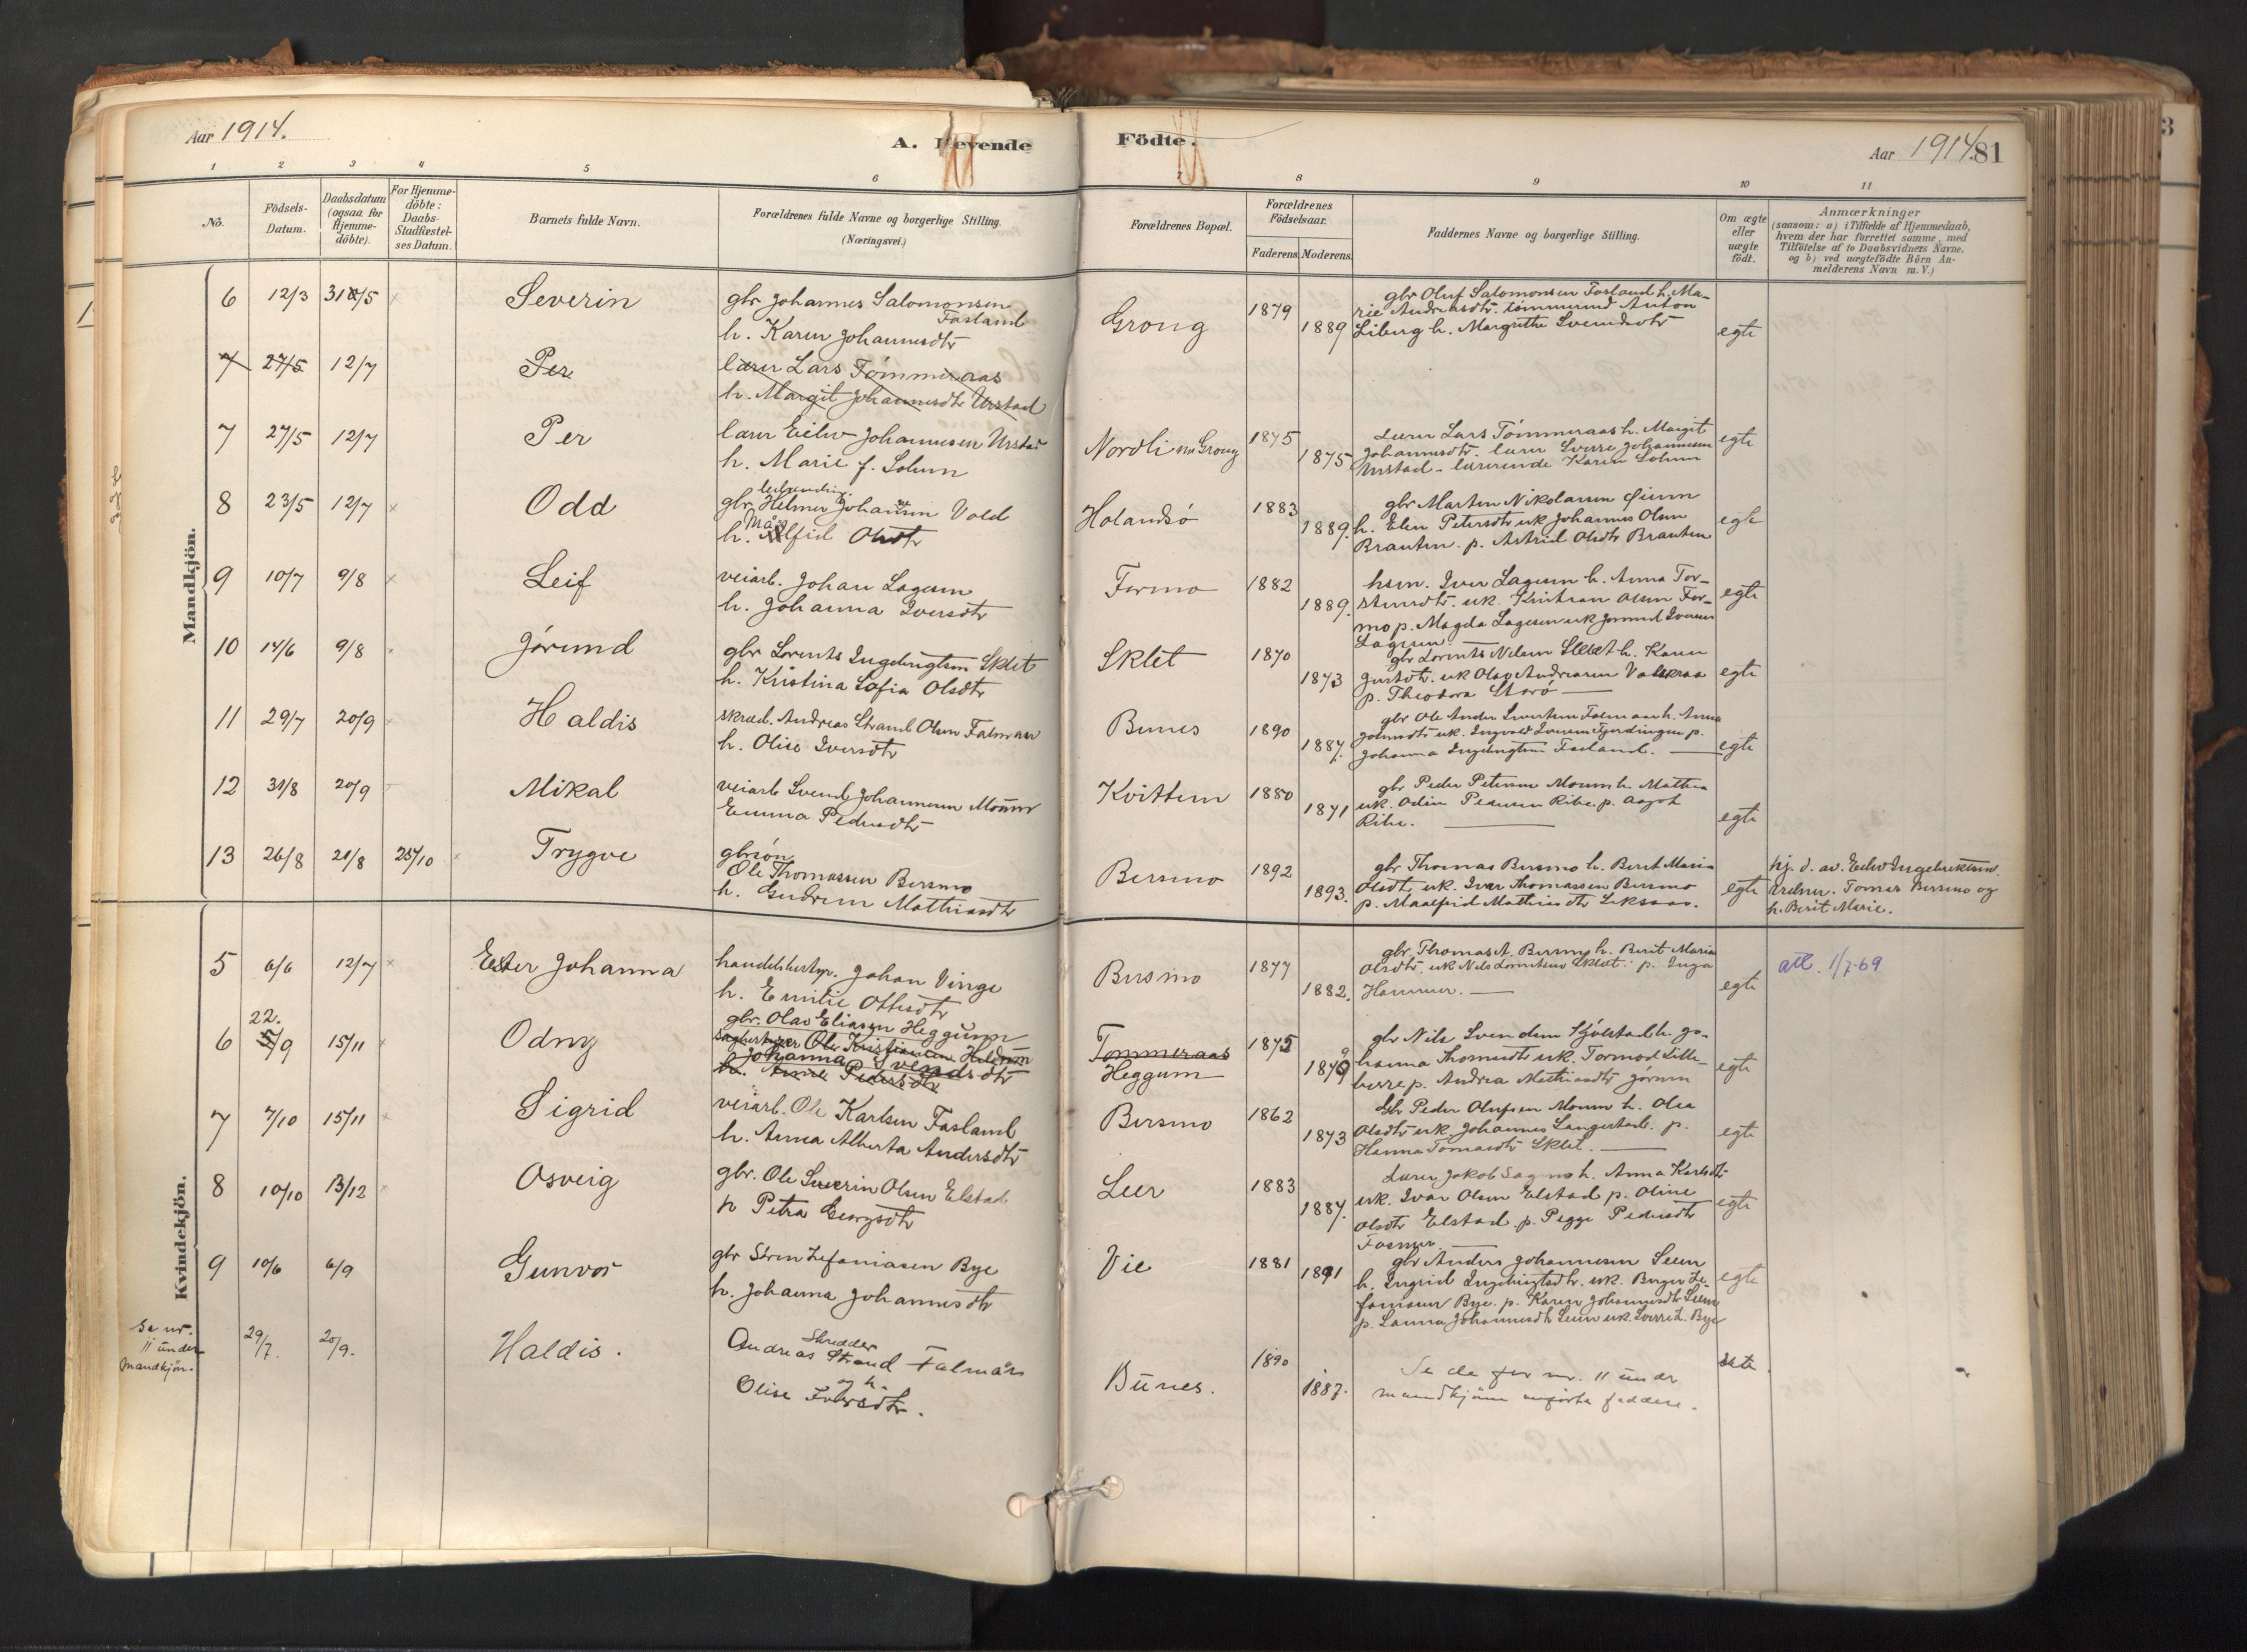 Aar 1914.
A. Levende
Födte.
Aar 1914. 81
1 2 3 4 5 6 7 8 9 10 11
No.
Födsels-
Datum.
Daabsdatum
(ogsaa for
Hjemme-
döbte).
For Hjemme-
döbte:
Daabs-
Stadfæstel-
ses Datum.
Barnets fulde Navn.
Forældrenes fulde Navne og borgerlige Stilling.
(Næringsvei.)
Forældrenes Bopæl.
Forældrenes
Födselsaar.
Faderens. Moderens.
Faddernes Navne og borgerlige Stilling.
Om ægte
eller
uægte
födt.
Anmærkninger
(saasom: a) i Tilfælde af Hjemmedaab,
hvem der har forrettet samme, med
Tilföielse af to Daabsvidners Navne,
og b) ved uægtefödte Börn An-
melderens Navn m. V.)
Mandkjön.
6 12/3 31/5 Severin
gbr Johannes Salomonsen
Fosland
h. Karen Johannesdtr
Grong
1879
1889
gbr Oluf Salomonsen Fosland h. Ma-
rie Andreasdtr. tømmermand Anton
Liberg h. Margrethe Svendsdtr
egte
7 27/5 12/7 Per
lærer Lars Tømmeraas
h. Margit Johannesdtr Urstad
7 27/5 12/7 Per
lærer Eiliv Johannesen Urstad
h. Marie f. Solum
Nordli Grong
1875
1875
Lærer Lars Tømmeraas h. Margit
Johannesdtr. lærer Sverre Johannesen
Urstad - lærerinde Karen Solum
egte
8 23/5 12/7 Odd
gbr. Helmer Johansen Vold
h. Målfid Olsdtr
Holandsö
1883
1889.
gbr Morten Nikolaisen Øium
h. Elen Petersdtr uk Johannes Olsen
Brauten. p. Astrid Olsdtr Brauten
egte
9 10/7 9/8 Leif
veiarb. Johan Lagesen
h. Johanna Iversdtr
Formo
1882
1889.
hsm. Iver Lagesen h. Anna Tor-
stensdtr. uk. Kristian Olsen For-
mo p. Magda Lagesen uk Jørund Iversen
Lagesen.
egte
10 14/6 9/8 Jörund
gbr Lorents Ingebrigtsen Sklet
h. Kristina Sofia Olsdtr
Sklet
1870
1873
gbr Lorents Nilsen Sklet h. Karen
uk Olav Andreasen Valskraa
p. Theodora Storö
egte
11 29/7 20/9 Haldis
skræd. Andreas Strand Olsen Falmaar
h. Olise Iversdtr
Bunes
1890
1887.
gbr Ole Ander Sivertsen Falmaar h. Anna
uk. Ingvald Iversen Fjerdingen p.
Johanna Ingebrigtsen Fosland.
egte
12 31/8 20/9 Mikal
veiarb Svend Johannesen Moum
Emma Pedersdtr
Kvittem
1880
1871
gbr Peder Petersen Moum h. Mathea
uk. Odin Pedersen Ribe p. Aagot
Ribe.
egte
13 26/8 28/8 25/10 Trygve
gbrsøn
Ole Thomassen Bersmo
h. Gudrun Mathiasdtr
Bersmo
1892
1893.
gbr Thomas Bersmo h. Berit Maria
Olsdtr uk. Ivar Thomassen Bersmo
p. Maalfrid Mathiasdtr Seksaas.
egte
hj. d. av. Eiliv Ingebriktsen
Tomas Bersmo og
h. Berit Marie.
Kvindekjön.
5 6/6 12/7 Ester Johanna
handelsbestyr. Johan Vinge
h. Emilie Ottesdtr
Bersmo
1877
1882.
gbr. Thomas A. Bersmo h. Berit Maria
Olsdtr uk Nils Lorntsen Sklet. p. Inga
Hammer.
egte
att. 1/7-69
6 22. 5/9 15/11 Odny
gbr. Olav Eliasen Heggum
Sagbruksarb. Ole Kristiansen
Johanna Svendsdtr
h. Anne Pedersdtr
Tømmeraas
Heggum
1875
1879
gbr Nils Svendsen Gjolstad h. Jo-
hanna Thomasdtr uk. Tormod Lille-
berre p. Andrea Mathiasdtr Jørum
egte
7 7/10 15/11 Sigrid
veiarb. Ole Karlsen Fosland
h. Anna Alberta Andersdtr
Bersmo
1862
1873
Gbr Peder Olufsen Moum h. Olea
Olsdtr uk Johannes Langestad. p.
Hanna Tomasdtr Sklet.
egte
8 10/10 13/12 Osveig
gbr. Ole Severin Olsen Elstad
h Petra Georgsdtr
Leer
1883
1887.
Lærer Jakob Sagmo h. Anna Karlsdtr
uk. Ivar Olsen Elstad p. Oline
Olsdtr Elstad. p. Pegge Pedersdtr
Fosmo
egte
9 10/6 6/9 Gunvor
gbr Sören Zefaniasen Bye
h. Johanna Johannesdtr
Vie
1881
1891
gbr Anders Johannesen Seem
h. Ingrid Ingebrigtsdtr. uk. Birger Ze-
faniasen Bye. p. Karen Johannesdtr Seem
p. Lauina Johannesdtr Seem uk. Sverre Bye
egte
Se nr.
11 under
Mandkjön.
29/7. 20/9. Haldis.
Skredder
Andreas Strand Falmår
og h.
Olise Iversdtr.
Bunes.
1890
1887.
Se de for nr. 11 under
mandkjøn anførte faddere.
ekte.